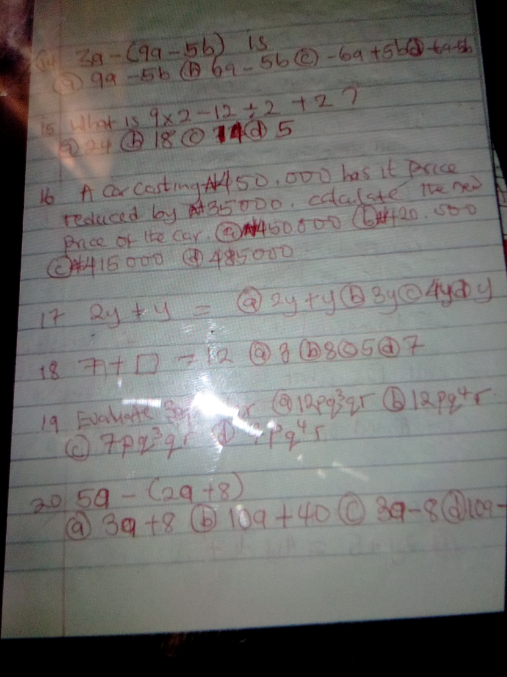 14 3a - (9a - 5b) is
(a) 9a - 5b (b) 6a - 5b (c) -6a + 5b (d) -6a-5b
15 What is 9x2 - 12 ÷ 2 + 2 ?
(a) 24 (b) 18 (c) 14 (d) 5
16 A car costing ₦450,000 has it price
reduced by ₦35000. calculate the new
price of the car. (a) ₦450000 (b) ₦420.500
(c) ₦415000 (d) 485000
17 2y + y = (a) 2y + y (b) 3y (c) 4y (d) y
18 7 + □ = 12 (a) 3 (b) 8 (c) 5 (d) 7
19 Evaluate (a) 12pq³qr (b) 12pq⁴r
(c) 7pq³qr (d)
20 5a - (2a + 8)
(a) 3a + 8 (b) 10a + 40 (c) 3a - 8 (d) 10a -